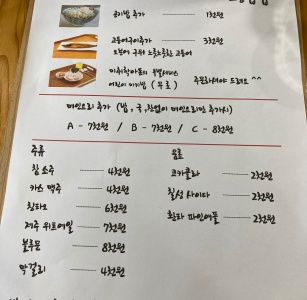 공기밥 추가 1천원
고등어구이추가 3천원
오븐에 구워 노릇노릇한 고등어
미취학아동의 특별서비스
어린이 미키밥 (무료) 주문하셔야 드려요 ^^
메인요리 추가 (밥, 국, 찬없이 메인요리만 추가시)
A - 7천원 / B - 7천원 / C - 8천원
주류 음료
참 소주 4천원 코카콜라 2천원
카스 맥주 4천원 칠성 사이다 2천원
한라산 6천원 환타 파인애플 2천원
제주 위트에일 7천원
블루문 8천원
막걸리 4천원